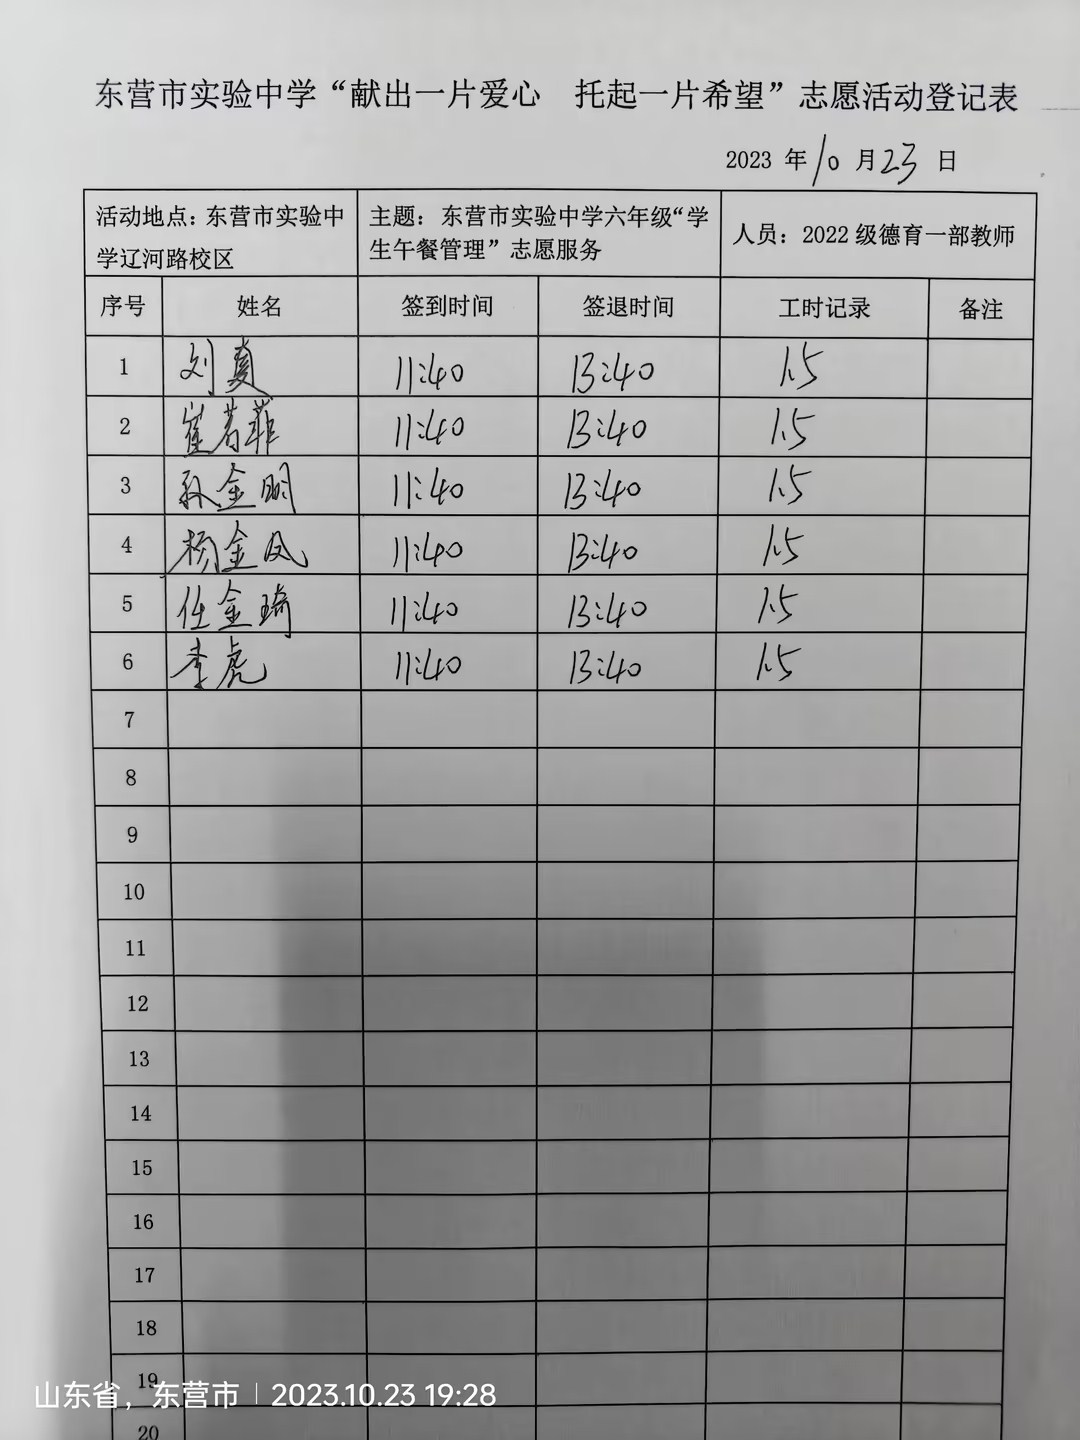 东营市实验中学“献出一片爱心 托起一片希望”志愿活动登记表
2023 年 10 月 23 日
活动地点：东营市实验中学辽河路校区 主题：东营市实验中学六年级“学生午餐管理”志愿服务 人员：2022 级德育一部教师
序号 姓名 签到时间 签退时间 工时记录 备注
1 刘爽 11:40 13:40 1.5
2 崔若菲 11:40 13:40 1.5
3 孙金明 11:40 13:40 1.5
4 杨金凤 11:40 13:40 1.5
5 任金琦 11:40 13:40 1.5
6 李虎 11:40 13:40 1.5
7
8
9
10
11
12
13
14
15
16
17
18
19
20
山东省，东营市 | 2023.10.23 19:28